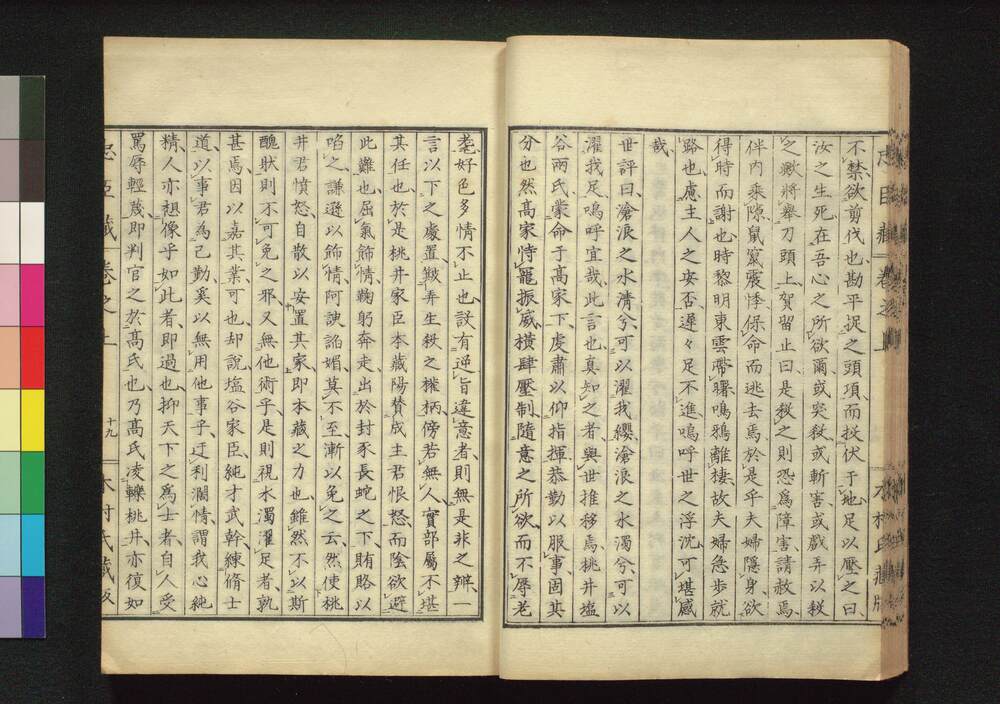 不禁欲剪伐也勘平捉之頭項而扠伏于地足以壓之曰
汝之生死在吾心之所欲爾或突殺或斬害或戲弄以殺
之歟將舉刀頭上賀留止曰是殺之則恐爲障害請赦焉
伴内乘隙鼠竄震悸保命而逃去焉於是乎夫婦隱身欲
得時而謝也時黎明東雲帶曙鳴鴉離棲故夫婦急步就
路也慮主人之安否遲々足不進嗚呼世之浮沈可堪感
哉
世評曰滄浪之水清兮可以濯我纓滄浪之水濁兮可以
濯我足嗚呼宜哉此言也真知之者與世推移焉桃井塩
谷兩氏蒙命于高家下虔肅以仰指揮恭勤以服事固其
分也然高家恃寵振威橫肆壓制隨意之所欲而不辱老
耄好色多情不止也設有逆旨違意者則無是非之辨一
言以下之處置皺弄生殺之權柄傍若無人實部屬不堪
其任也於是桃井家臣本藏陽贊成主君恨怒而陰欲避
此難也屈氣飾情鞠躬奔走出於封豕長蛇之下賄賂以
啗之謙遜以飾情阿諛諂媚莫不至漸以免之云然使桃
井君憤怒自散以安置其家即本藏之力也雖然不以斯
醜狀則不可免之邪又無他術乎是則視水濁濯足者孰
甚焉因以嘉其業可也却說塩谷家臣純才武幹練脩士
道以事君為己勤奚以無用他事乎迂利濶情謂我心純
精人亦想像乎如此者即過也抑天下之爲士者自人受
罵辱輕蔑即判官之於髙氏也乃髙氏凌轢桃井亦復如
忠臣藏 卷之上 十九 木村氏藏版